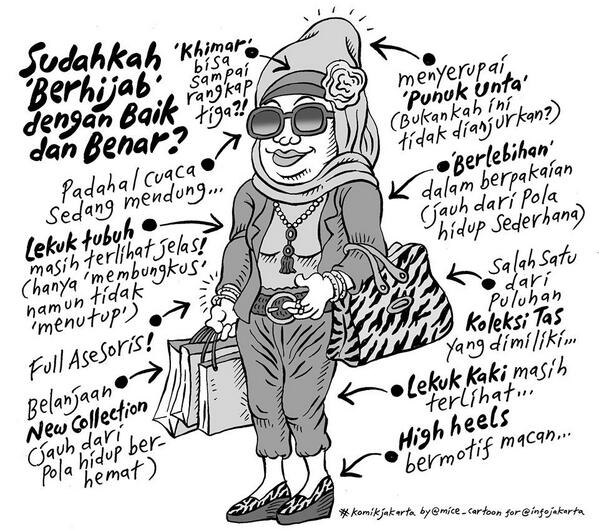 Sudahkah
'Berhijab'
dengan Baik
dan Benar?
'Khimar'
bisa
sampai
rangkap
tiga?!
menyerupai
'Punuk Unta'
(Bukankah ini
tidak dianjurkan?)
Padahal cuaca
Sedang mendung...
'Berlebihan'
dalam berpakaian
(jauh dari Pola
hidup Sederhana)
Lekuk tubuh
masih terlihat jelas!
(hanya 'membungkus'
namun tidak
'menutup')
Salah Satu
dari
Puluhan
Koleksi Tas
yang dimiliki...
Full Asesoris!
Belanjaan
New Collection
(jauh dari
Pola hidup ber-
hemat)
Lekuk Kaki masih
terlihat...
High heels
bermotif macan...
# komikjakarta by @mice_cartoon for @infojakarta